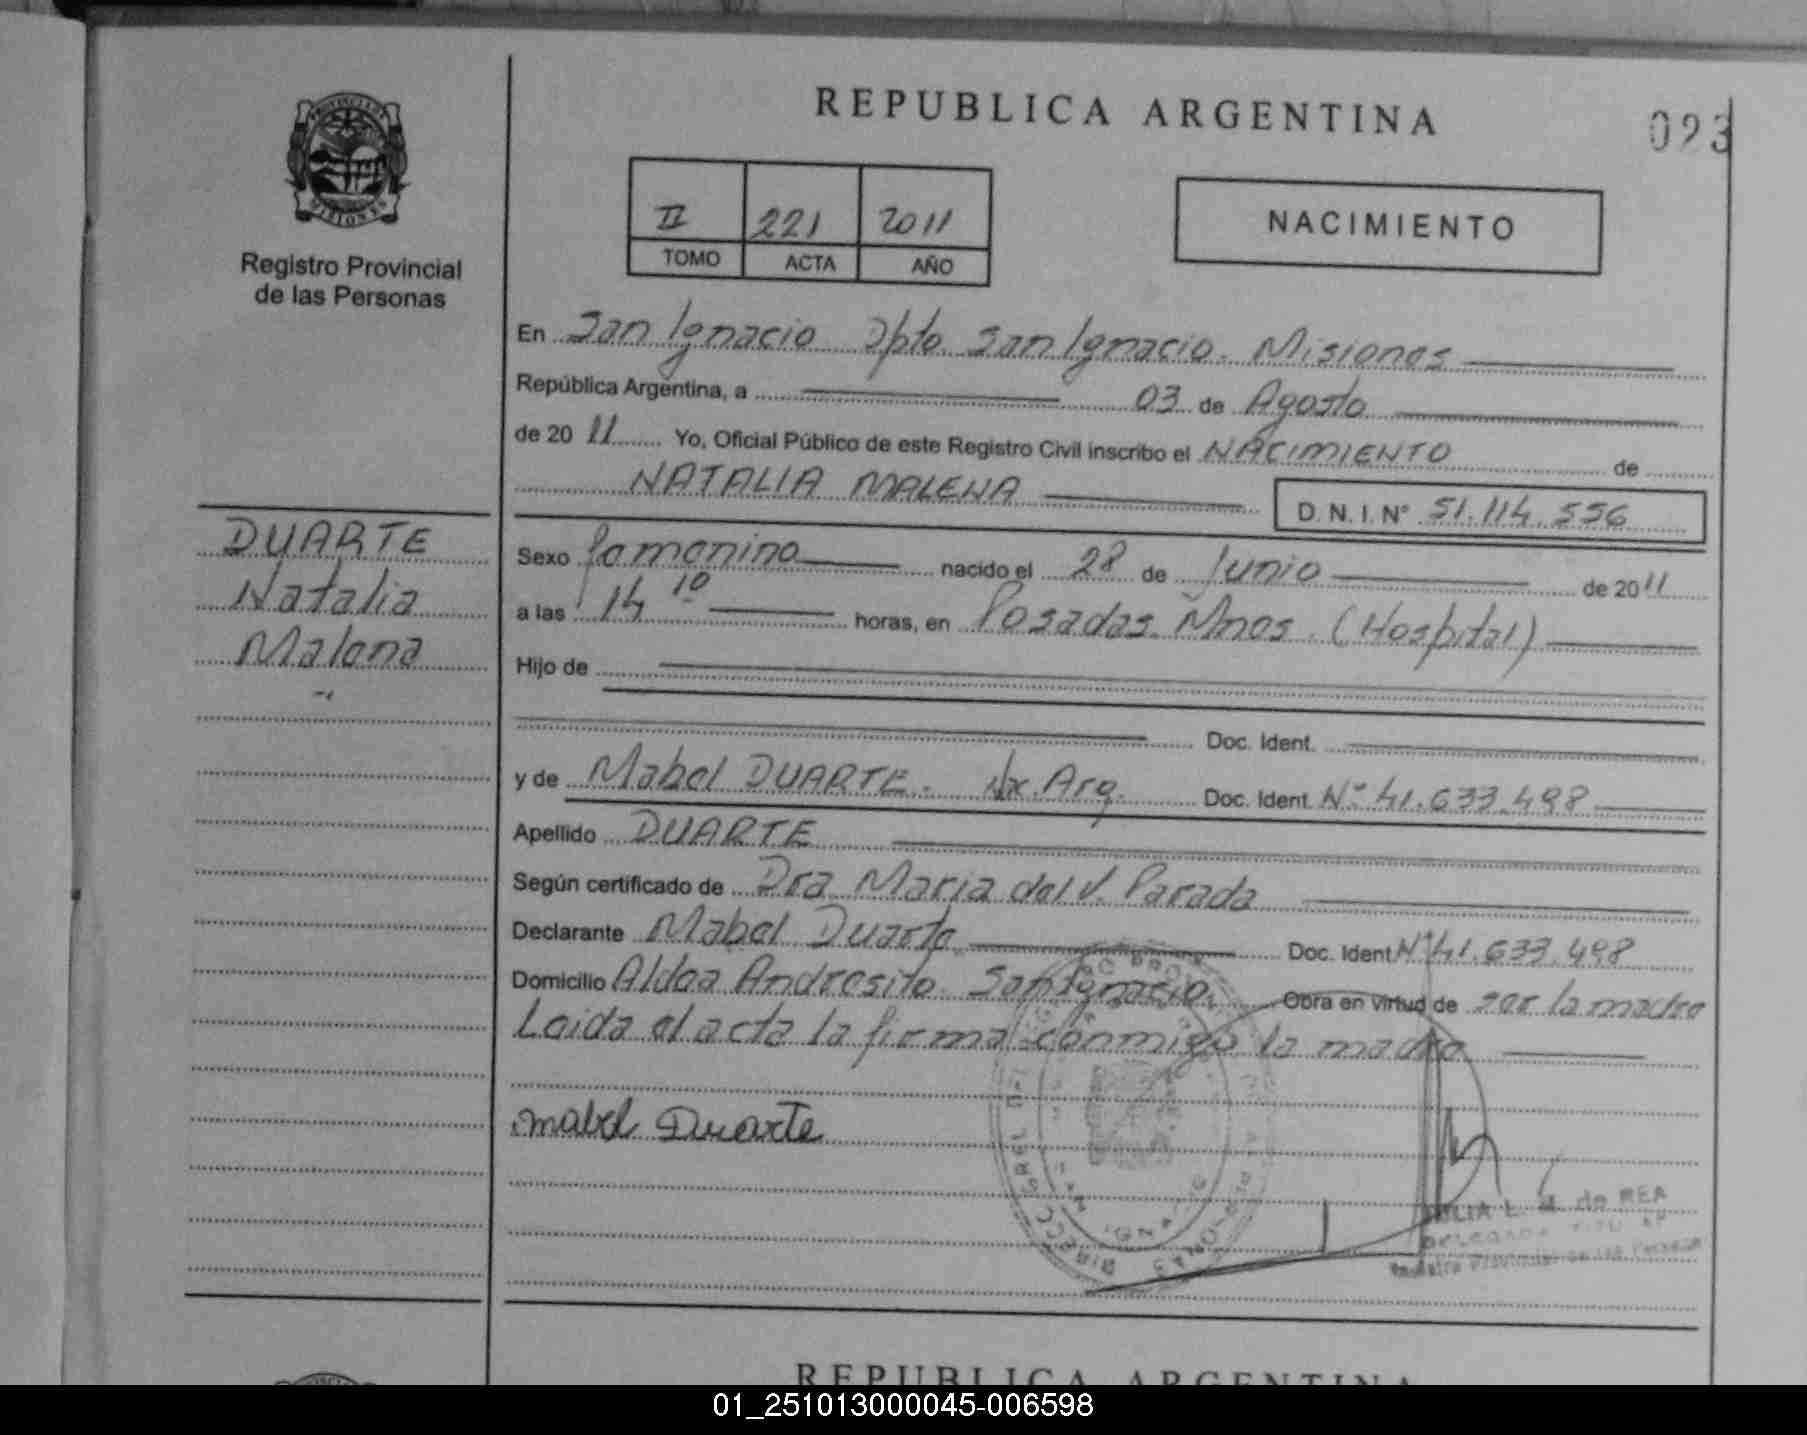 REPUBLICA ARGENTINA
023
PROVINCIA DE MISIONES
Registro Provincial
de las Personas
II 221 2011
TOMO ACTA AÑO
NACIMIENTO
En San Ignacio Dpto San Ignacio. Misiones
República Argentina, a 03 de Agosto
de 2011 Yo, Oficial Público de este Registro Civil inscribo el NACIMIENTO de
NATALIA MALENA
D.N.I.N° 51.114.556
DUARTE
Natalia
Malena
Sexo femenino nacido el 28 de Junio de 2011
a las 14 10 horas, en Posadas Mnes. (Hospital)
Hijo de
Doc. Ident.
y de Mabel DUARTE. Nx. Arg. Doc. Ident. N° 41.633.498
Apellido DUARTE
Según certificado de Dra Maria del V. Parada
Declarante Mabel Duarte Doc. Ident N° 41.633.498
Domicilio Aldea Andresito San Ignacio. Obra en virtud de ser la madre
Leida el acta la firma conmigo la madre
mabel Duarte
L. M. de REA
Registro Provincial de las Personas
REPUBLICA ARGENTINA
01_251013000045-006598